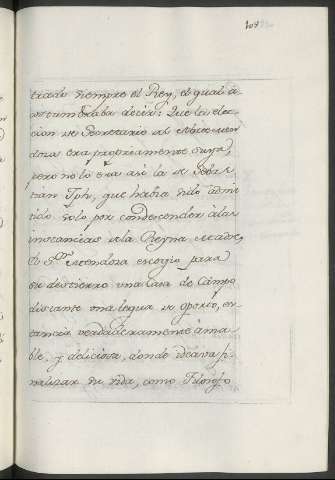 trado siempre el Rey, el qual a-
costumbraba decir: Que la elec-
cion de Secretario al Men-
doza era propriamente suya,
pero no lo era asi la de Sebas-
tian Jph, que habia sido admi-
tido solo por condescender á las
instancias de la Reyna Madre,
El S.or Mendoza escogio para
su destierro una Casa de Campo
distante una legua de Oporto, es-
tancia verdaderamente ama-
ble, y deliciosa, donde ideava fi-
nalizar su vida, como Filosofo